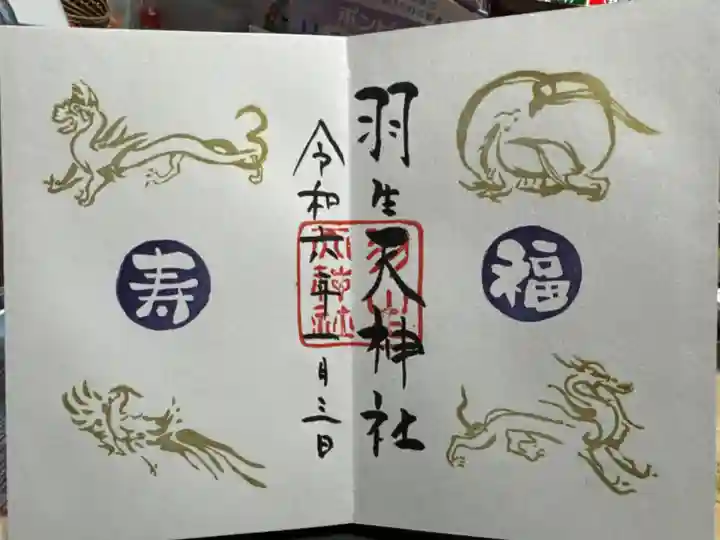 福
羽生天神社
令和六年一月三日
寿